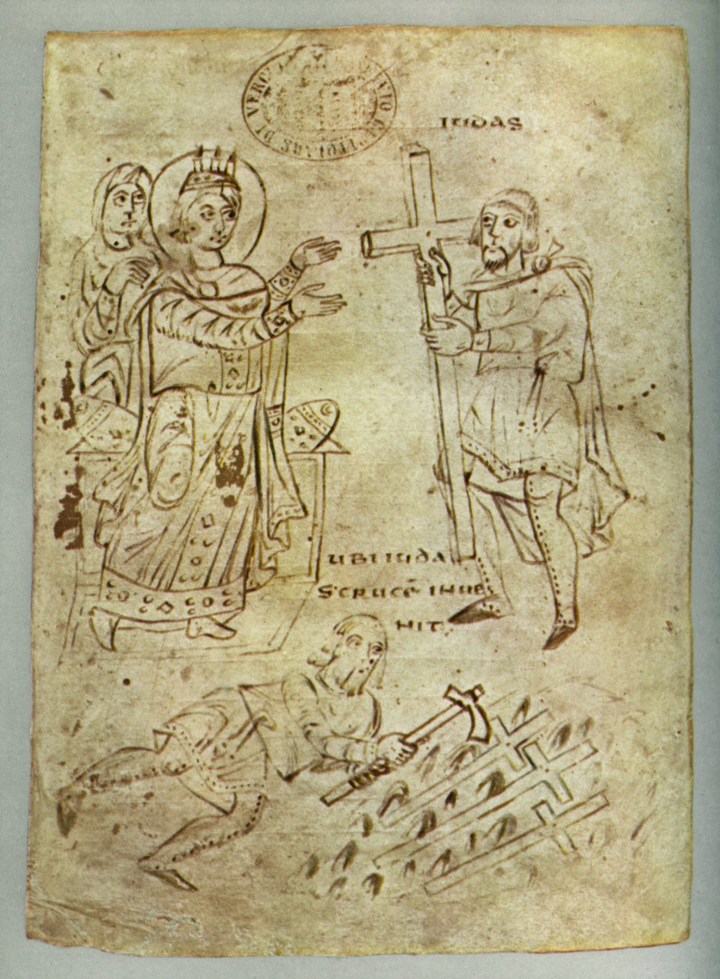 IUDAS
UBI IUDA
S·CRUCĒ INUE
NIT·